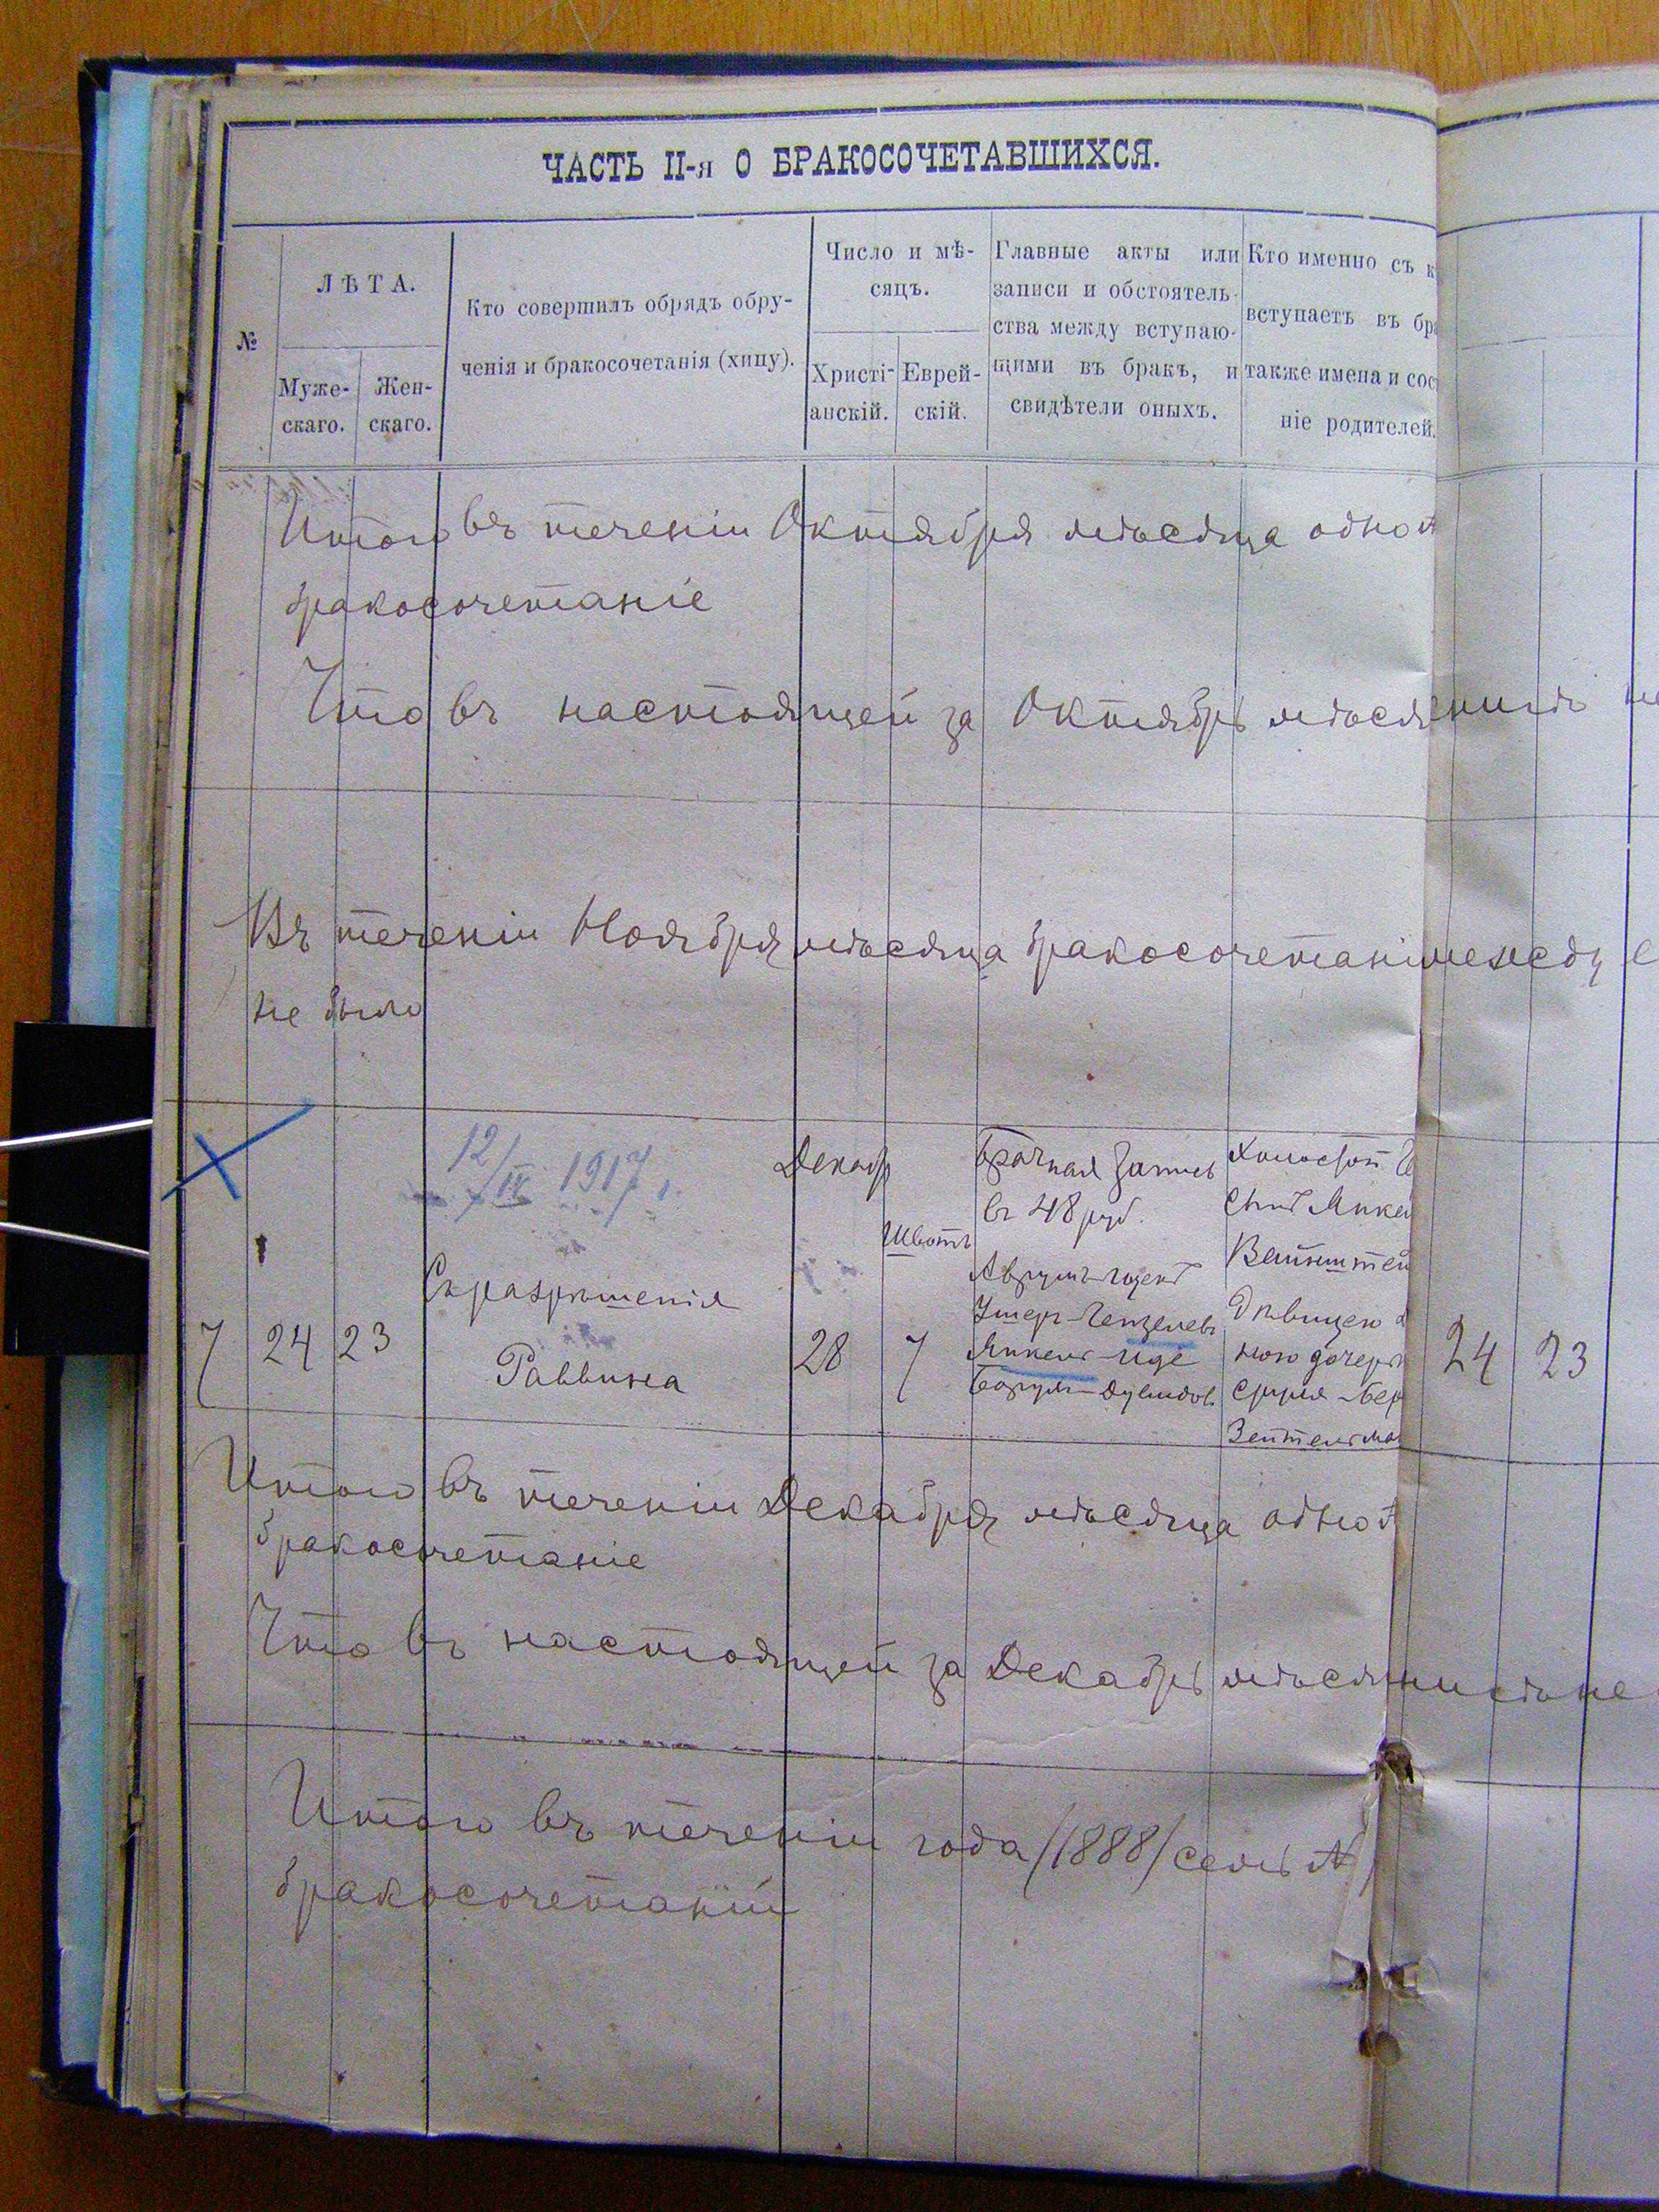 ЧАСТЬ II-я О БРАКОСОЧЕТАВШИХСЯ.
№
ЛѢТА.
Муже-
скаго.
Жен-
скаго.
Кто совершилъ обрядъ обру-
ченія и бракосочетанія (хипу).
Число и мѣ-
сяцъ.
Христі-
анскій.
Еврей-
скій.
Главные акты или
записи и обстоятель-
ства между вступаю-
щими въ бракъ, и
свидѣтели оныхъ.
Кто именно съ к
вступаетъ въ бра
также имена и сос
ніе родителей.
Итого въ теченіи Октября мѣсяца одно
бракосочетаніе
Что въ настоящей за Октябрь мѣся
Въ теченіи Ноября мѣсяца бракосочетаніи
не было
12/IV 1917 г.
7 24 23
Съ разрѣшенія
Раввина
Декабр
28
Шватъ
7
Брачная запись
въ 48 руб.
Холостой
сынъ
Вайнштей
дѣвицею
ною дочерью
Зейтельма
24 23
Итого въ теченіи Декабря мѣсяца одно
бракосочетаніе
Что въ настоящей за Декабрь мѣся
Итого въ теченіи года /1888/ семь
бракосочетаній